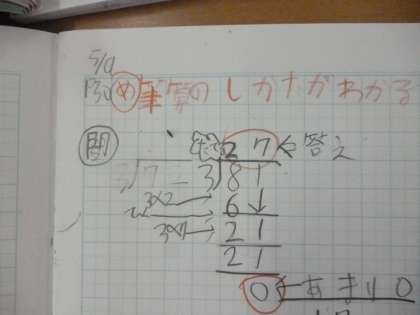 5/9
130 め 筆算のしかたがわかる
問 27 ← 答え
3)72 3)81
3×2 → 6↓
3×7 → 21
21
0 ← あまり0